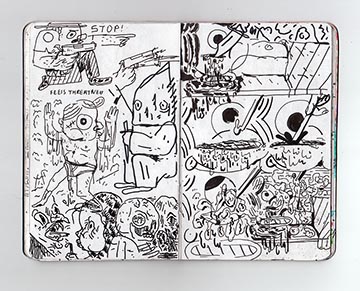 STOP!
FEELS THREATENED